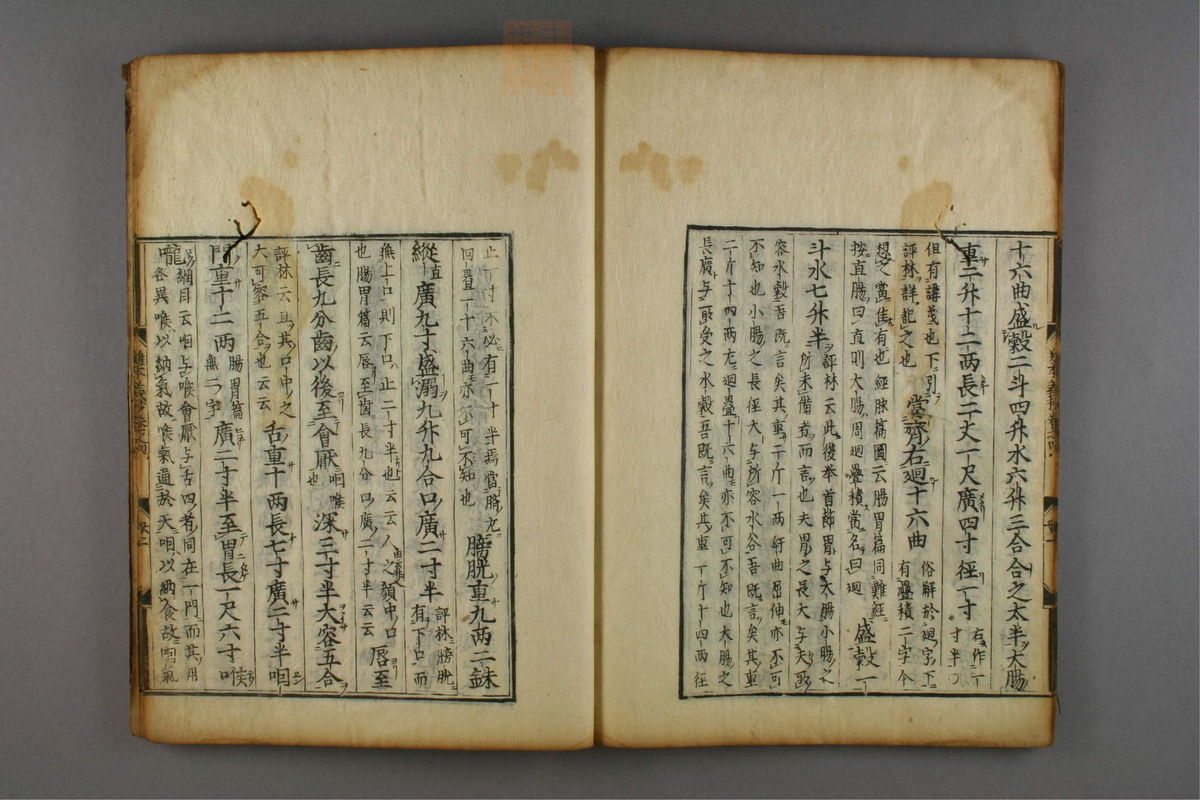 十六曲盛穀二斗四升水六升三合合之太半大腸
重二升十二两長二丈一尺廣四寸徑一寸右作一寸半
但有講義也下引
評林詳註之也
當齊右廻十六曲
俗解於廻字下
有疊積二字今
想之當焦有也經脉篇圖云腸胃篇同難經
按直腸曰直則大腸周廻疊積當名曰廻
盛穀一
斗水七升半
評林云此後举首節胃与大腸小腸之
所未備者而言也夫胃之長大与夫所
容水穀吾既言矣其重二斤一两紆曲屈伸亦不可
不知也小腸之長徑大与所容水谷吾既言矣其重
二斤十四两左廻疊十六曲亦不可不知也大腸之
長廣与所受之水穀吾既言矣其重二斤十四两徑
止一寸不必有一寸半焉當臍右
回疊一十六曲亦不可不知也
膀胱重九两二銖
縱廣九寸盛溺九升九合口廣二寸半
評林膀胱
有下口而
無上口則下口止二寸半也云云人之頦中口
也腸胃篇云唇至齒長九分口廣二寸半云云
唇至
齒長九分齒以後至會厭
咽喉
也
深三寸半大容五合
評林云且其口中之
大可容五合也云云
舌重十两長七寸廣二寸半咽
門重十二两
腸胃篇
無二字
廣二寸半至胃長一尺六寸喉
嚨
綱目云咽与喉會厭与舌四者同在一門而其用
各異喉以納氣故喉氣通於天咽以納食故咽氣